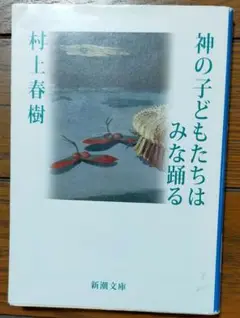 神の子どもたちは
みな踊る
村上春樹
新潮文庫